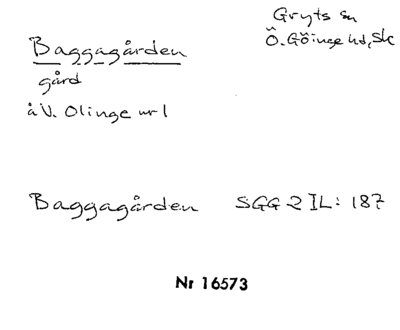 Gryts sn
Baggagården
Ö. Göinge hd, Sk
gård
å V. Olinge nr 1
Baggagården SGG 2 IL: 187
Nr 16573